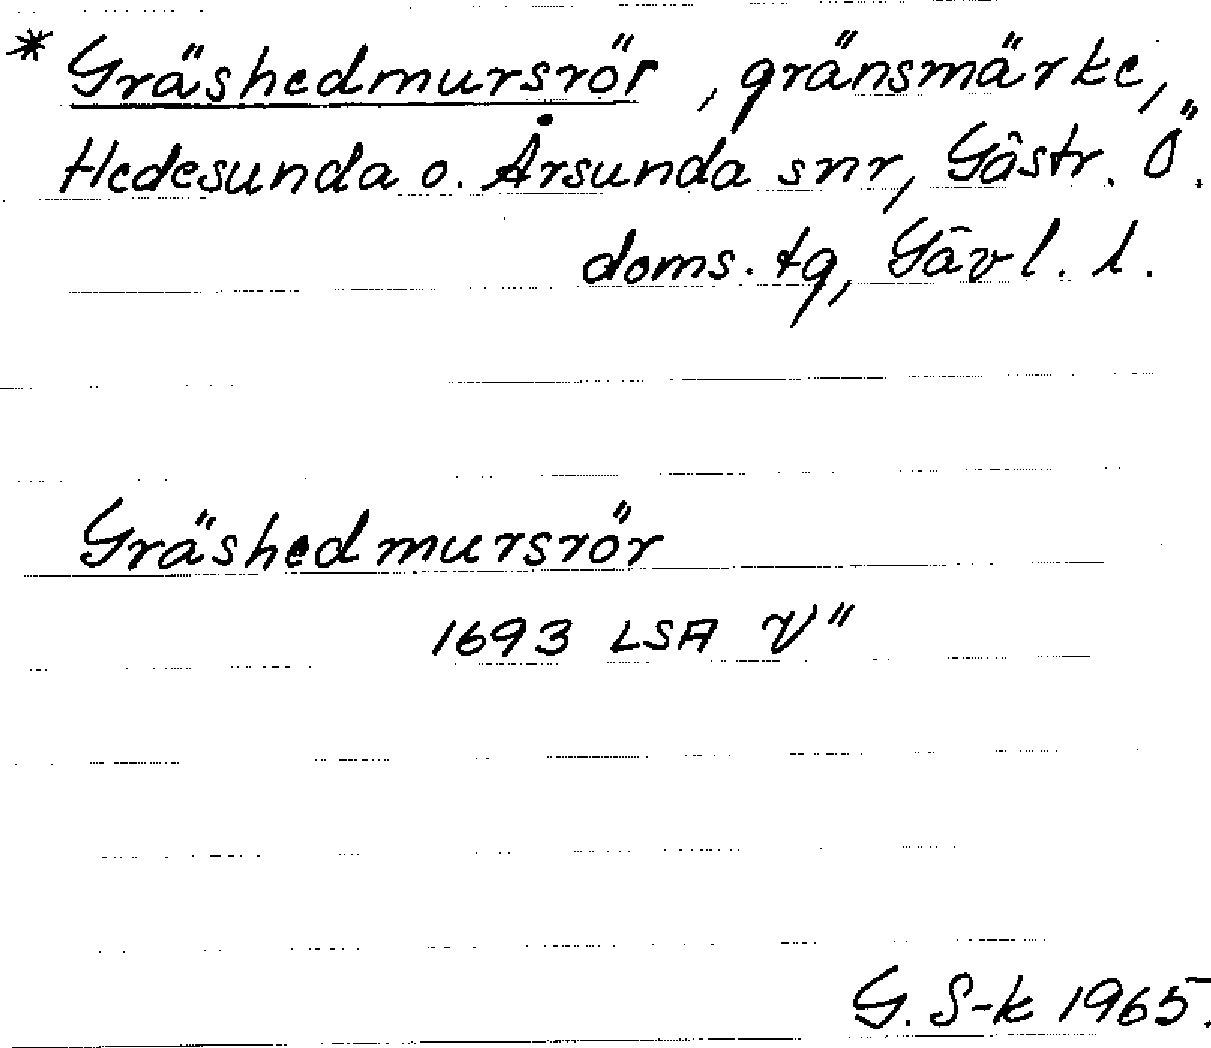 * Gräshedmursrör, gränsmärke,
Hedesunda o. Årsunda snr, Gästr. Ö.
doms. tg, Gävl. l.
Gräshedmursrör
1693 LSA V"
G. S-k 1965.